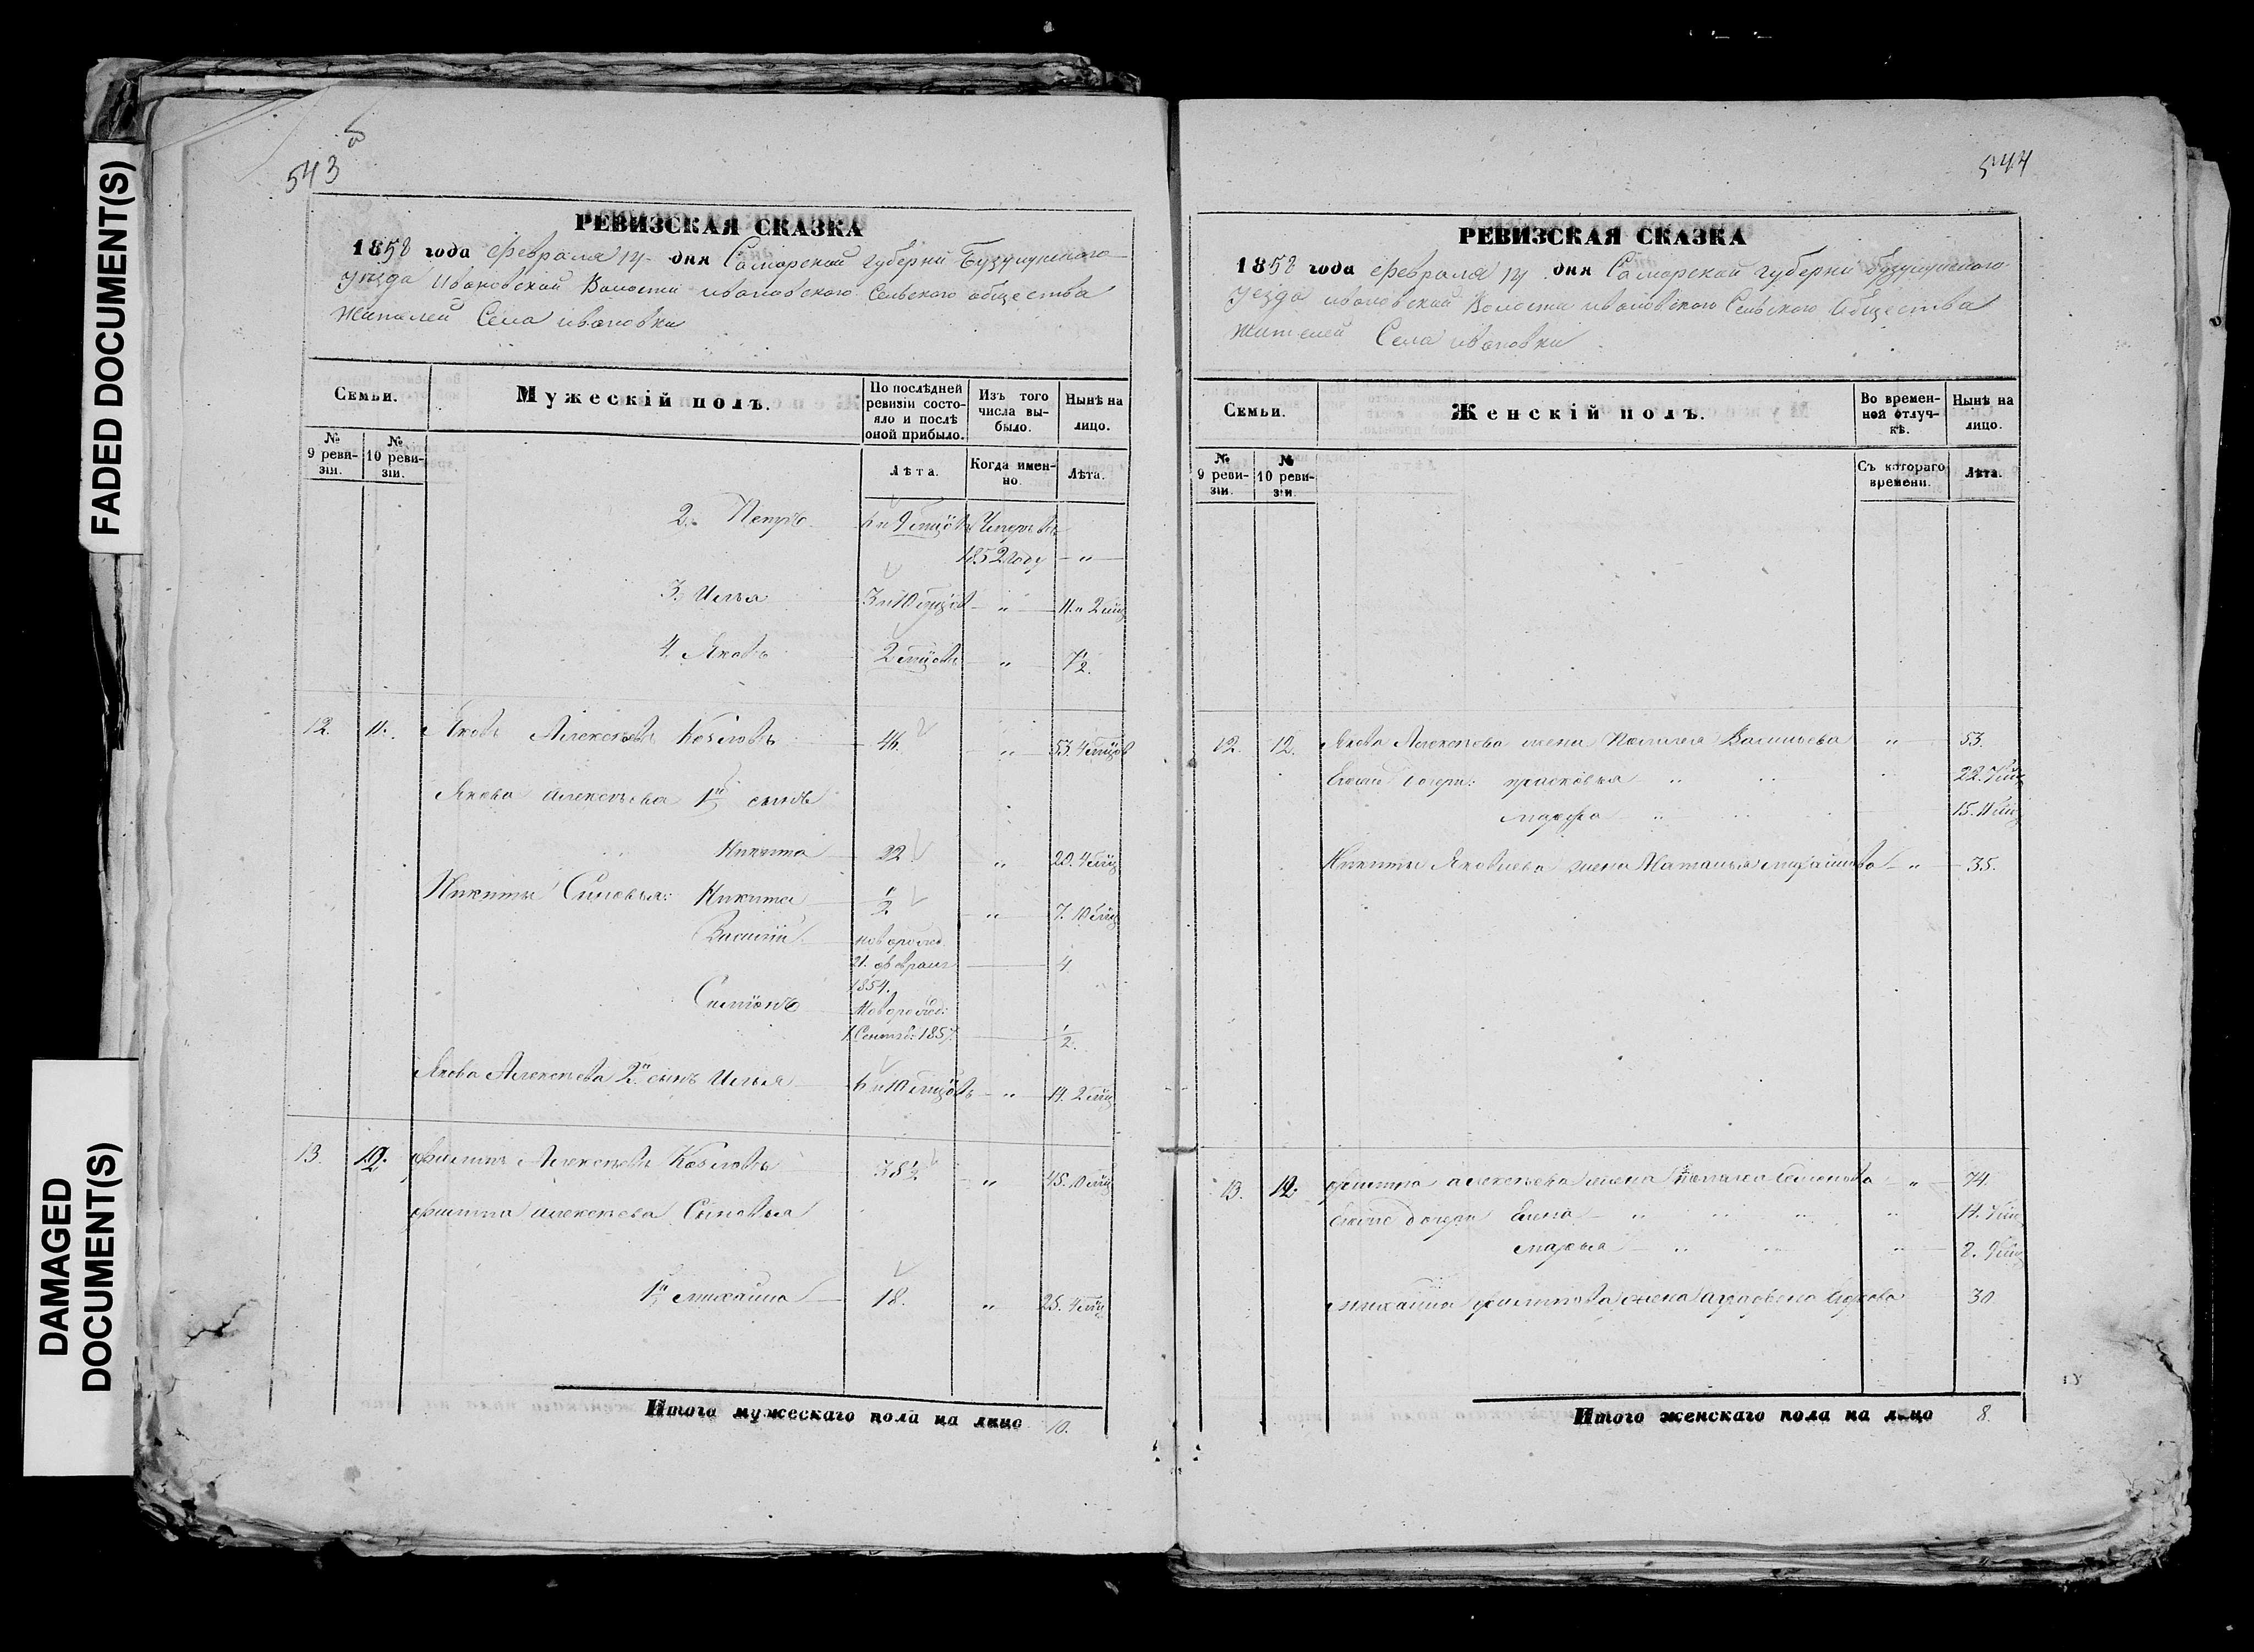 FADED DOCUMENT(S)
DAMAGED
DOCUMENT(S)
543
РЕВИЗСКАЯ СКАЗКА
1858 года февраля 14 дня Самарской губерни Бузулукского
Уезда Ивановской Волости ивановского Сельского общества
Жителей Села ивановки
Семьи.
Мужескій полъ.
По послѣдней ревизіи состояло и послѣ оной прибыло.
Изъ того числа выбыло.
Нынѣ на лицо.
№ 9 ревизіи.
№ 10 ревизіи.
Лѣта.
Когда именно.
Лѣта.
2. Петръ 6 и 9 мцовъ Умеръ въ
1852 году "
3. Илья 3 и 10 мцов " 11 и 2 мц
4. Яковъ 2 мцовъ " 7 1/2.
12. 11. Яковъ Алексѣевъ Козловъ 46. " 53. 4 мцов
Якова Алексѣева 1й сынъ
Никита 22 " 29. 4 мц
Никиты Сыновья: Никита 1/2 " 7. 10 мц
Василій новорожд.
21. феврал 4
1854.
Симіонъ Новорожд:
1 Сентяб: 1857. 1/2.
Якова Алексѣева 2й сынъ Илья 6 и 10 мцовъ " 14. 2 мц
13. 12. филипъ Алексѣевъ Козловъ 38 1/2. " 45. 10 мц
филипа алексѣева Сыновья
1й михаила 18. " 25. 4 мц
Итого мужескаго пола на лицо 10.
544
РЕВИЗСКАЯ СКАЗКА
1858 года февраля 14 дня Самарской губерни бузулукского
Уезда ивановской Волости ивановского Сельского Общества
Жителей Села ивановки
Семьи.
Женскій полъ.
Во временной отлучкѣ.
Нынѣ на лицо.
№ 9 ревизіи.
№ 10 ревизіи.
Съ котораго времени.
Лѣта.
12. 12. Якова Алексѣева жена Васильева " 53.
дочери: прасковья " 22. 7 мц
марфа " 15. 11 мц
Никиты Яковлева жена Наталья " 35.
13. 12. филипа алексѣева жена Семенова " 74.
дочери Елена " 14. 7 мц
марья " 2. 9 мц
михаила филипова жена аграфена 30
Итого женскаго пола на лицо 8.